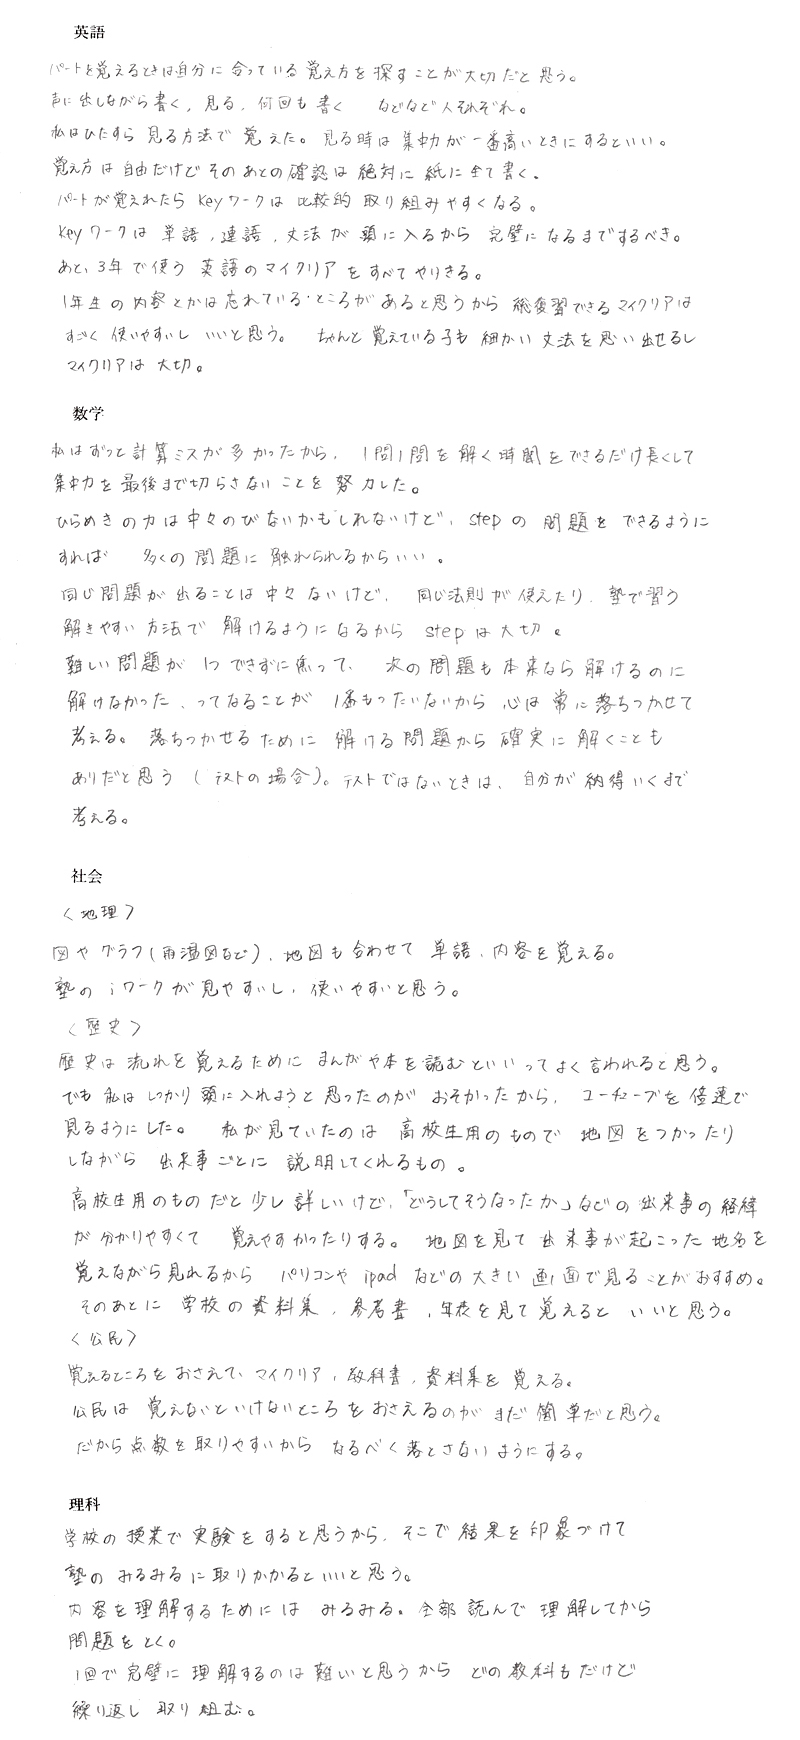 英語
パートを覚えるときは自分に合っている覚え方を探すことが大切だと思う。
声に出しながら書く、見る、何回も書く などなど人それぞれ。
私はひたすら見る方法で覚えた。見る時は集中力が一番高いときにするといい。
覚え方は自由だけどそのあとの確認は絶対に紙に全て書く。
パートが覚えれたらKeyワークは比較的取り組みやすくなる。
Keyワークは単語、連語、文法が頭に入るから完璧になるまでするべき。
あと、3年で使う英語のマイクリアをすべてやりきる。
1年生の内容とかは忘れているところがあると思うから総復習できるマイクリアは
すごく使いやすいしいいと思う。 ちゃんと覚えている子も細かい文法を思い出せるし
マイクリアは大切。
数学
私はずっと計算ミスが多かったから、1問1問を解く時間をできるだけ長くして
集中力を最後まで切らさないことを努力した。
ひらめきの力は中々のびないかもしれないけど、stepの問題をできるように
すれば 多くの問題に触れられるからいい。
同じ問題が出ることは中々ないけど、同じ法則が使えたり、塾で習う
解きやすい方法で解けるようになるからstepは大切。
難しい問題が1つできずに焦って、次の問題も本来なら解けるのに
解けなかった、ってなることが1番もったいないから心は常に落ちつかせて
考える。落ちつかせるために解ける問題から確実に解くことも
ありだと思う(テストの場合)。テストではないときは、自分が納得いくまで
考える。
社会
〈地理〉
図やグラフ(雨温図など)、地図も合わせて単語、内容を覚える。
塾のiワークが見やすいし、使いやすいと思う。
〈歴史〉
歴史は流れを覚えるためにまんがや本を読むといいってよく言われると思う。
でも私はしっかり頭に入れようと思ったのがおそかったから、ユーチューブを倍速で
見るようにした。 私が見ていたのは高校生用のもので地図をつかったり
しながら出来事ごとに説明してくれるもの。
高校生用のものだと少し詳しいけど、「どうしてそうなったか」などの出来事の経緯
が分かりやすくて覚えやすかったりする。地図を見て出来事が起こった地名を
覚えながら見れるからパソコンやipadなどの大きい画面で見ることがおすすめ。
そのあとに学校の資料集、参考書、年表を見て覚えるといいと思う。
〈公民〉
覚えるところをおさえて、マイクリア、教科書、資料集を覚える。
公民は覚えないといけないところをおさえるのがまだ簡単だと思う。
だから点数を取りやすいからなるべく落とさないようにする。
理科
学校の授業で実験をすると思うから、そこで結果を印象づけて
塾のみるみるに取りかかるといいと思う。
内容を理解するためにはみるみる。全部読んで理解してから
問題をとく。
1回で完璧に理解するのは難しいと思うからどの教科もだけど
繰り返し取り組む。